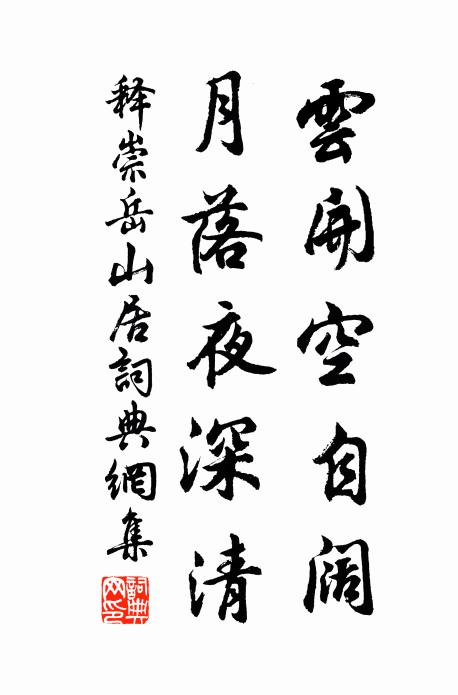 雲開空自闊
月落夜深清
释崇岳山居詞典網集
詞典網印